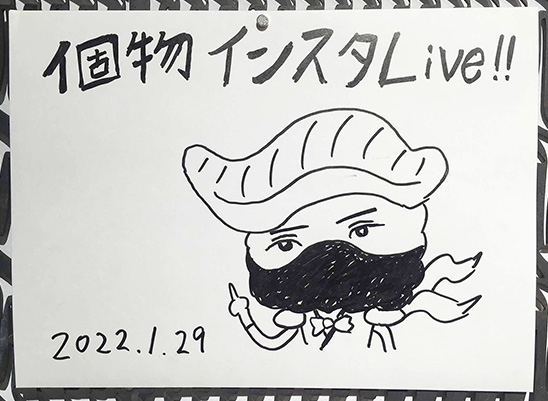 個物 インスタLive!!
2022.1.29